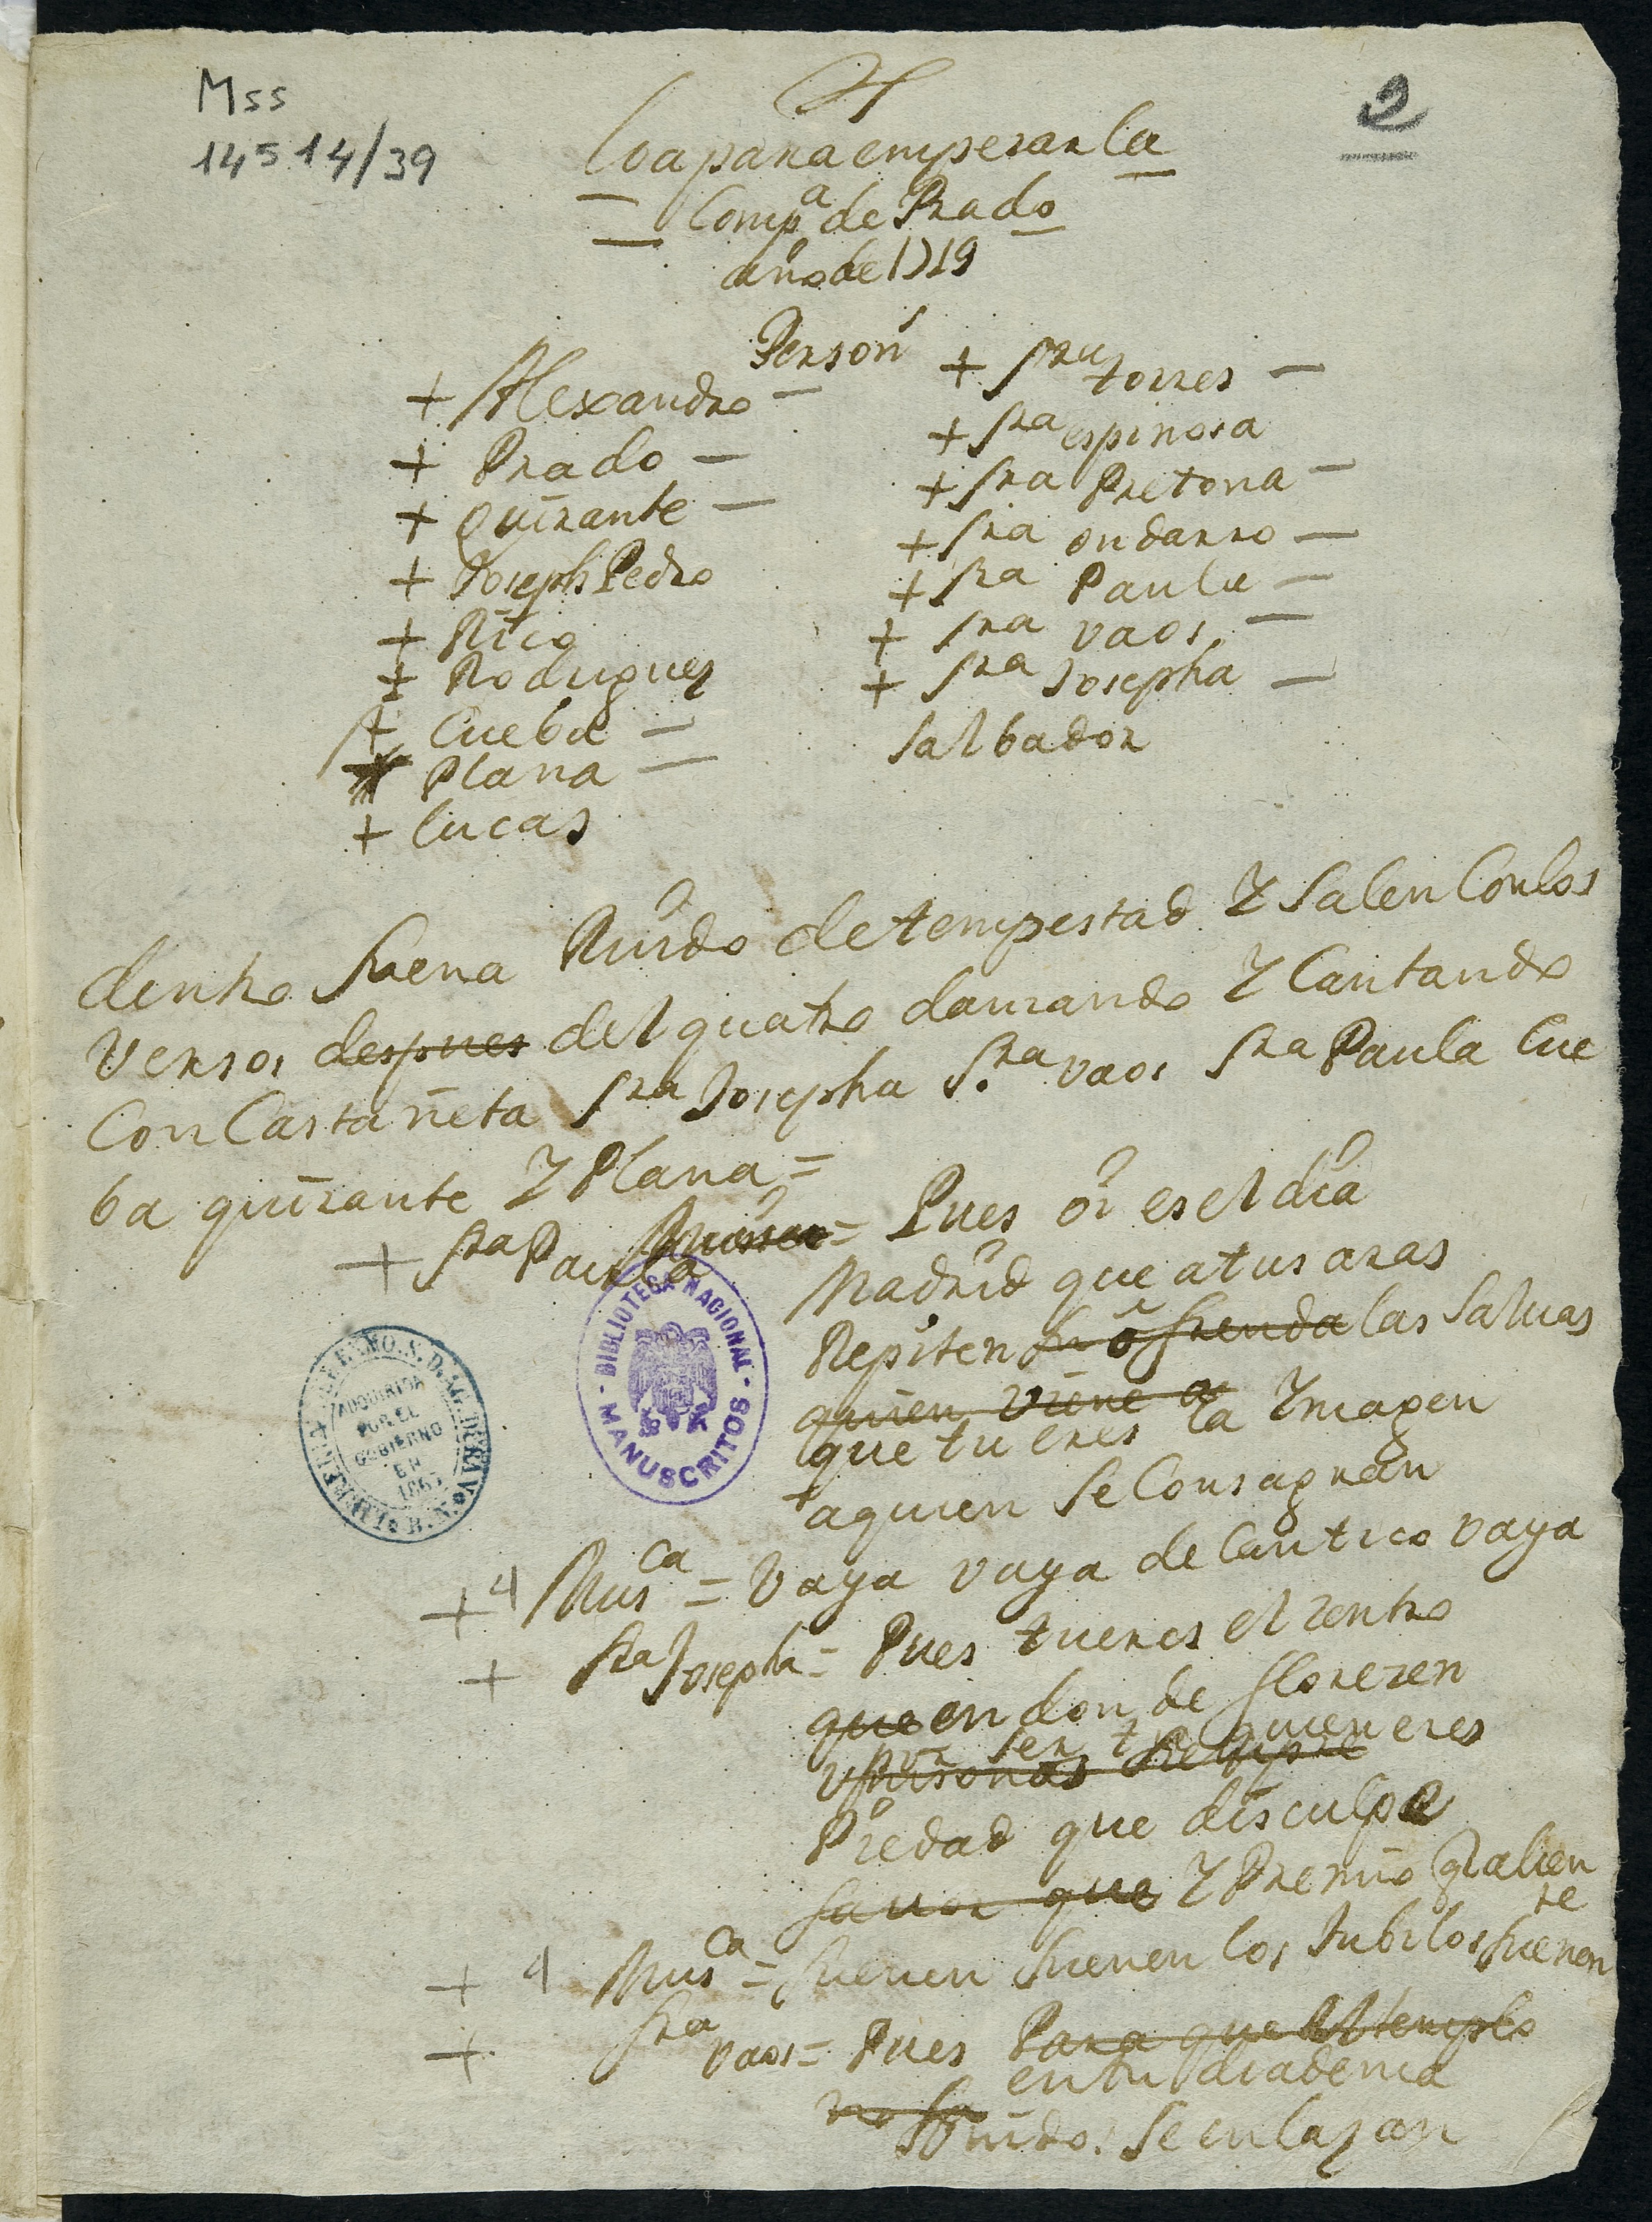 Mss
14514/39
2
Loa para empezar la
Compª de Prado
año de 1719
Person
+ Alexandro —
+ Prado —
+ Quirante —
+ Joseph Pedro
+ Rico
+ Rodriguez
+ Cueba —
Plana —
+ Lucas
+ Sra torres —
+ Sra espinosa
+ Sra Pretona —
+ Sra ondarro —
+ Sra Paula —
+ Sra vaos —
+ Sra Josepha —
Salbador
dentro Suena Ruido de tempestad Y Salen Con los
Versos despues del quatro danzando Y Cantando
Con Castañeta Sra Josepha S.ra vaos Sra Paula Cue
ba quirante Y Plana =
+ Sra Paula = Pues oi es el dia
Madrid que a tus aras
Repiten su ofrenda las Saluas
quien viene a
que tu eres la Ymagen
a quien Se Consagran
+ 4 Musca = Vaya vaya de Cantico vaya
+ Sra Josepha = Pues tu eres el zentro
que en donde florezen
por ser tu quien eres
Piedad que disculpe
fauor que Y Premio que aliente
+ 4 Musca = Suenen Suenen los Jubilos Suenen
+ Sra vaos = Pues Para que Al templo
en tu diadema
Unidos Se enlazan
BIBLIOTECA NACIONAL
MANUSCRITOS
ADQUIRIDA
POR EL
GOBIERNO
EN